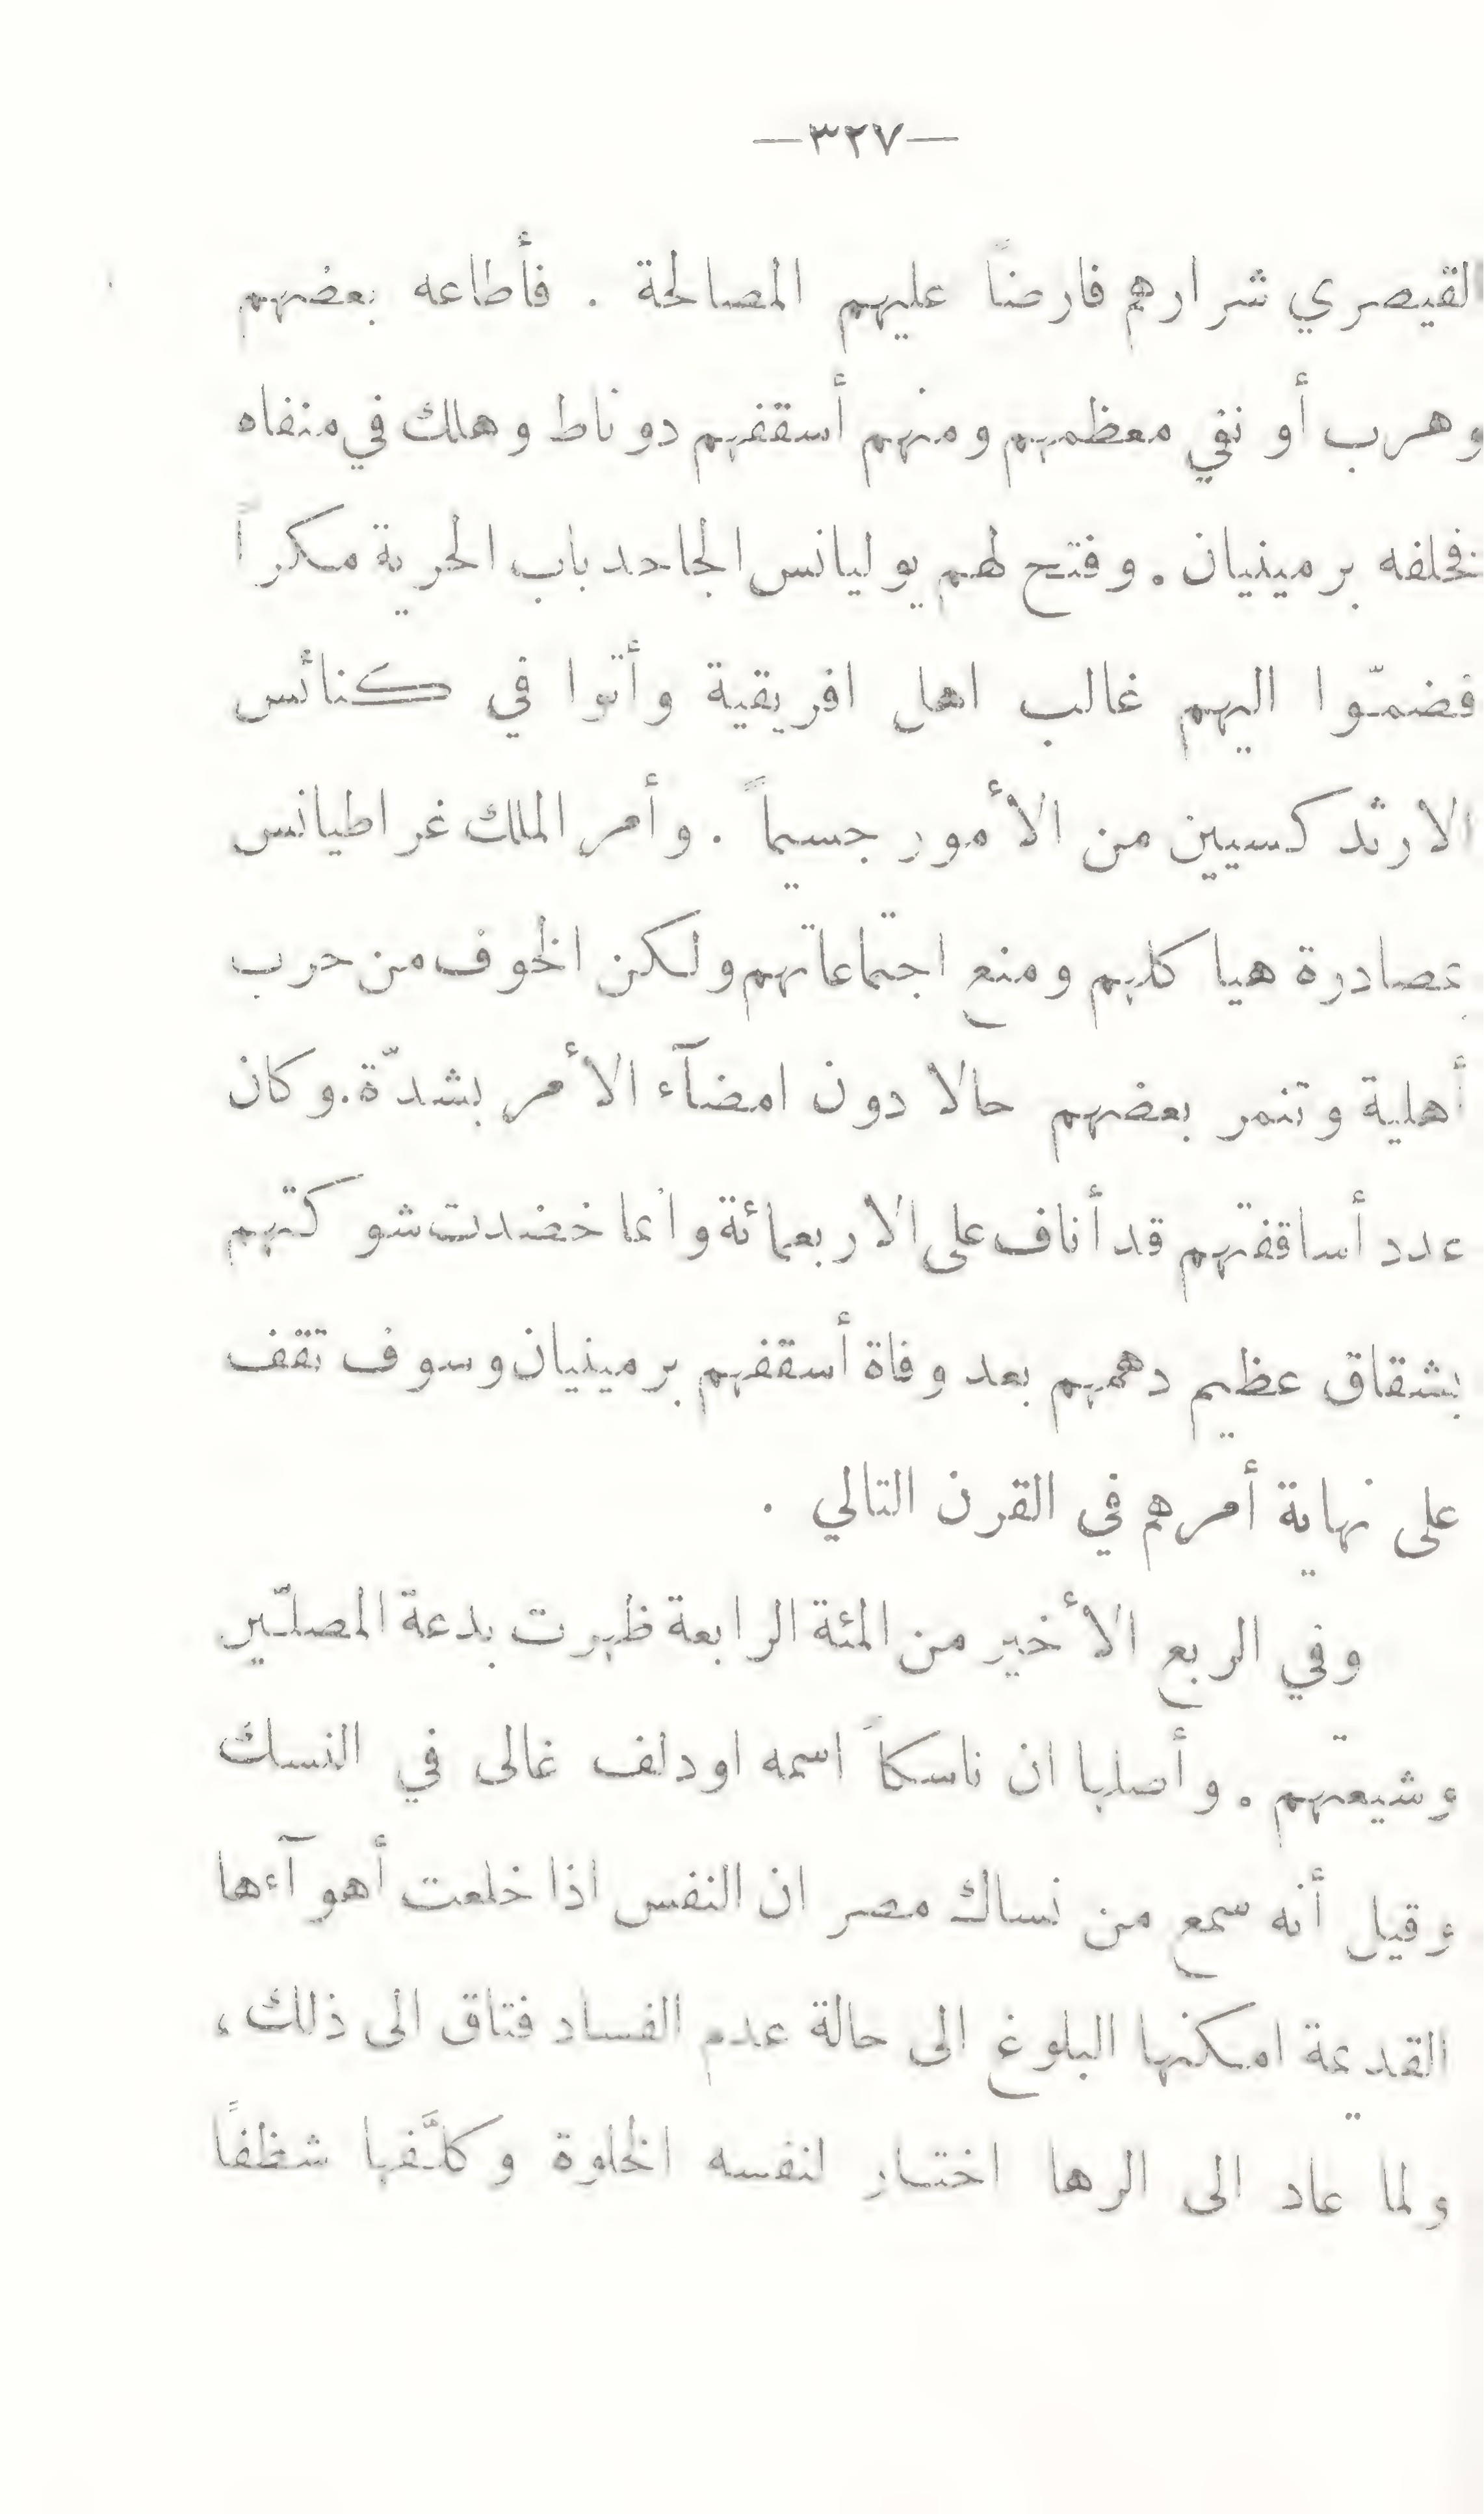 —٣٢٧—
القيصري شرارهم فارضاً عليهم المصالحة . فأطاعه بعضهم
وهرب أو نفي معظمهم ومنهم أسقفهم دوناط وهلك في منفاه
فخلفه برمينيان . وفتح لهم يوليانس الجاحد باب الحرية مكراً
فضمّوا اليهم غالب اهل افريقية وأتوا في كنائس
الارثذكسيين من الأمور جسيماً . وأمر الملك غراطيانس
بمصادرة هياكلهم ومنع اجتماعاتهم ولكن الخوف من حرب
أهلية وتنمر بعضهم حالا دون امضآء الأمر بشدّة . وكان
عدد أساقفتهم قد أناف على الاربعمائة وانما خضدت شوكتهم
بشقاق عظيم دهمهم بعد وفاة أسقفهم برمينيان وسوف تقف
على نهاية أمرهم في القرن التالي .
وفي الربع الأخير من المئة الرابعة ظهرت بدعة المصلّين
وشيعتهم . وأصلها ان ناسكاً اسمه اودلف غالى في النسك
وقيل أنه سمع من نساك مصر ان النفس اذا خلعت أهوآءها
القديمة امكنها البلوغ الى حالة عدم الفساد فتاق الى ذلك ،
ولما عاد الى الرها اختار لنفسه الخلوة وكلَّفها شظفاً